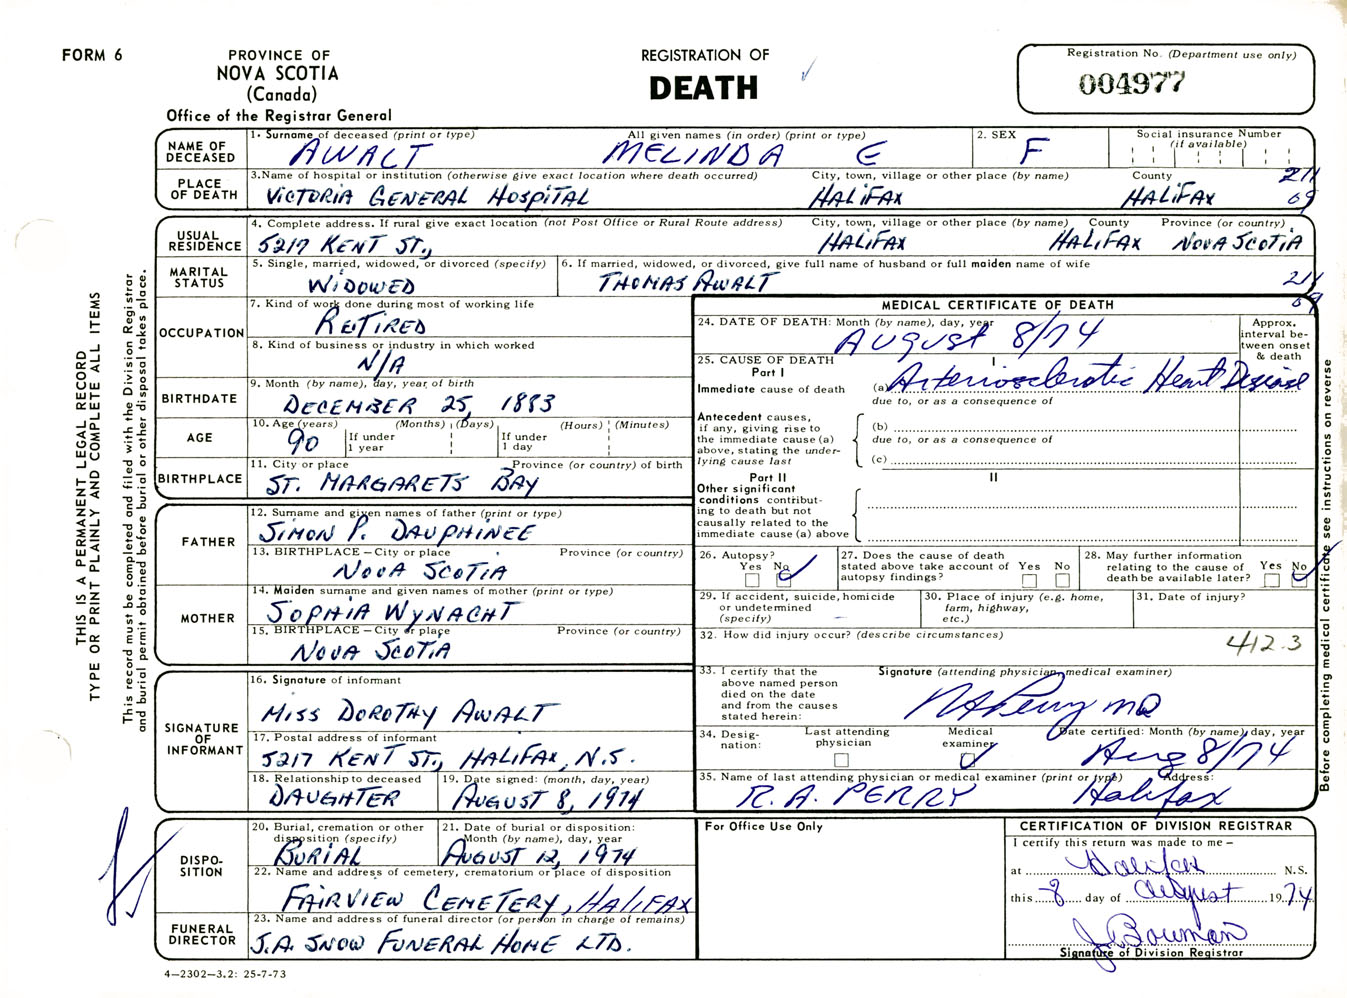 FORM 6
PROVINCE OF
NOVA SCOTIA
(Canada)
Office of the Registrar General
REGISTRATION OF
DEATH
Registration No. (Department use only)
004977
THIS IS A PERMANENT LEGAL RECORD
TYPE OR PRINT PLAINLY AND COMPLETE ALL ITEMS
This record must be completed and filed with the Division Registrar
and burial permit obtained before burial or other disposal takes place.
NAME OF
DECEASED
1. Surname of deceased (print or type) All given names (in order) (print or type) 2. SEX Social insurance Number
(if available)
AWALT MELINDA E F
PLACE
OF DEATH
3. Name of hospital or institution (otherwise give exact location where death occurred) City, town, village or other place (by name) County
VICTORIA GENERAL HOSPITAL HALIFAX HALIFAX
211
69
USUAL
RESIDENCE
4. Complete address. If rural give exact location (not Post Office or Rural Route address) City, town, village or other place (by name) County Province (or country)
5217 KENT ST., HALIFAX HALIFAX NOVA SCOTIA
MARITAL
STATUS
5. Single, married, widowed, or divorced (specify) 6. If married, widowed, or divorced, give full name of husband or full maiden name of wife
WIDOWED THOMAS AWALT
211
69
OCCUPATION
7. Kind of work done during most of working life
RETIRED
8. Kind of business or industry in which worked
N/A
BIRTHDATE
9. Month (by name), day, year of birth
DECEMBER 25, 1883
AGE
10. Age (years) (Months) (Days) (Hours) (Minutes)
90 If under
1 year
If under
1 day
BIRTHPLACE
11. City or place Province (or country) of birth
ST. MARGARETS BAY
FATHER
12. Surname and given names of father (print or type)
SIMON P. DAUPHINEE
13. BIRTHPLACE – City or place Province (or country)
NOVA SCOTIA
MOTHER
14. Maiden surname and given names of mother (print or type)
SOPHIA WYNACHT
15. BIRTHPLACE – City or place Province (or country)
NOVA SCOTIA
SIGNATURE
OF
INFORMANT
16. Signature of informant
MISS DOROTHY AWALT
17. Postal address of informant
5217 KENT ST., HALIFAX, N.S.
18. Relationship to deceased 19. Date signed: (month, day, year)
DAUGHTER AUGUST 8, 1974
DISPO-
SITION
20. Burial, cremation or other
disposition (specify)
BURIAL
21. Date of burial or disposition:
Month (by name), day, year
AUGUST 12, 1974
22. Name and address of cemetery, crematorium or place of disposition
FAIRVIEW CEMETERY, HALIFAX
FUNERAL
DIRECTOR
23. Name and address of funeral director (or person in charge of remains)
J.A. SNOW FUNERAL HOME LTD.
4–2302–3.2: 25-7-73
MEDICAL CERTIFICATE OF DEATH
24. DATE OF DEATH: Month (by name), day, year
AUGUST 8/74
Approx.
interval be-
tween onset
& death
25. CAUSE OF DEATH
Part I
I
Immediate cause of death (a) Arteriosclerotic Heart Disease
due to, or as a consequence of
Antecedent causes,
if any, giving rise to
the immediate cause (a)
above, stating the under-
lying cause last
(b)
due to, or as a consequence of
(c)
Part II
II
Other significant
conditions contribut-
ing to death but not
causally related to the
immediate cause (a) above
26. Autopsy?
Yes No
27. Does the cause of death
stated above take account of
autopsy findings?
Yes No
28. May further information
relating to the cause of
death be available later?
Yes No
29. If accident, suicide, homicide
or undetermined
(specify)
30. Place of injury (e.g. home,
farm, highway,
etc.)
31. Date of injury?
32. How did injury occur? (describe circumstances)
412.3
33. I certify that the
above named person
died on the date
and from the causes
stated herein:
Signature (attending physician, medical examiner)
RA Perry MD
34. Desig-
nation:
Last attending
physician
Medical
examiner
Date certified: Month (by name), day, year
Aug 8/74
35. Name of last attending physician or medical examiner (print or type) Address:
R. A. PERRY Halifax
Before completing medical certificate see instructions on reverse
For Office Use Only
CERTIFICATION OF DIVISION REGISTRAR
I certify this return was made to me –
at Halifax N.S.
this 8 day of August 1974
J. Bowman
Signature of Division Registrar